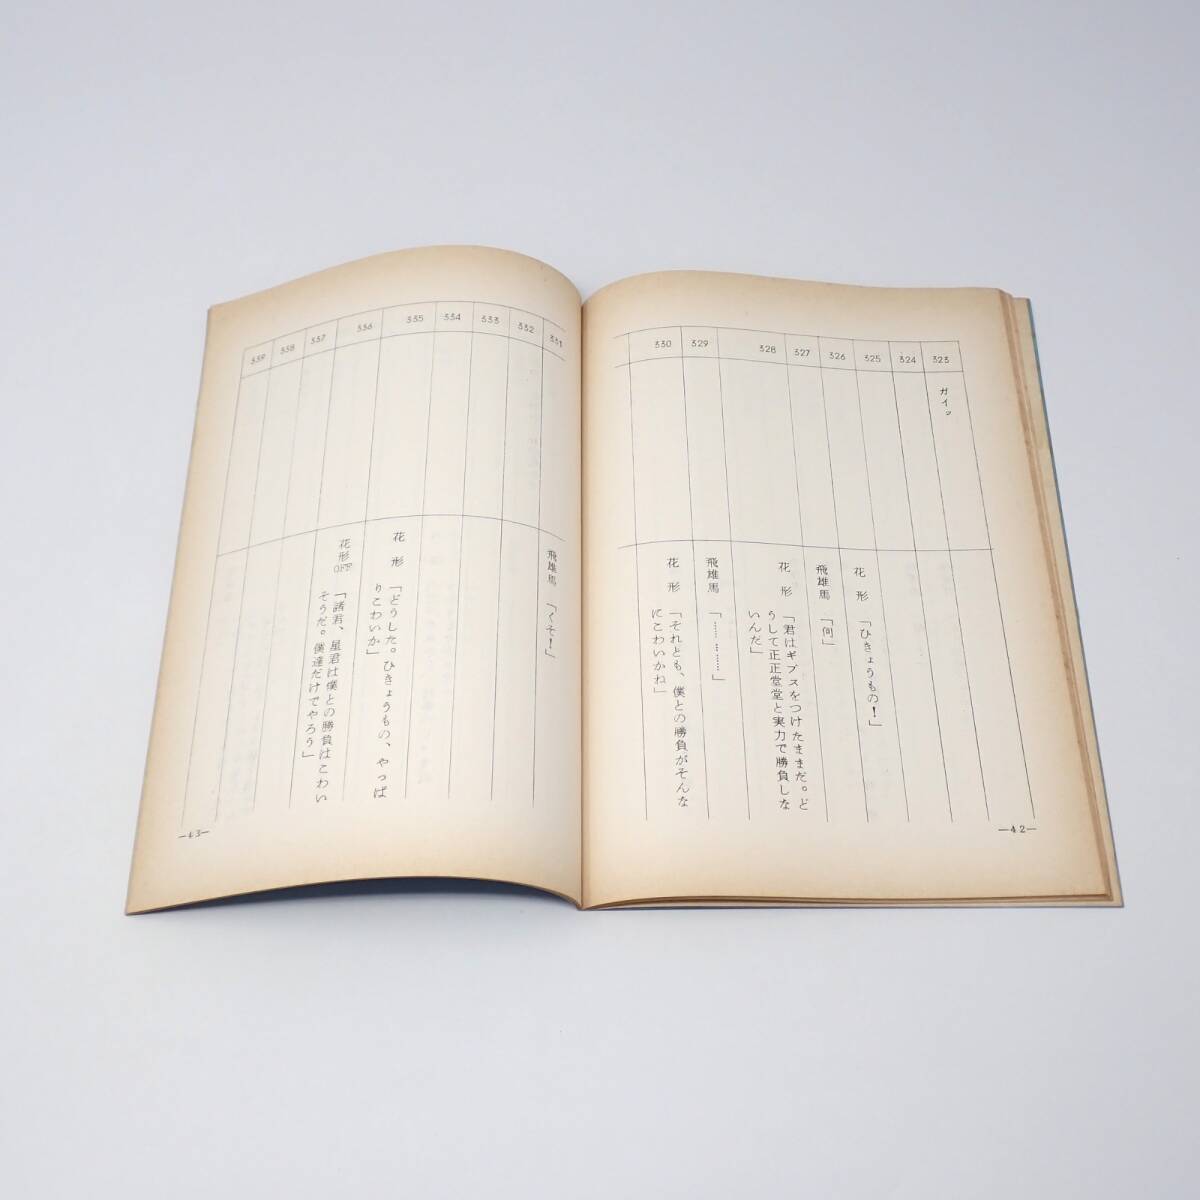 323
324
325
326
327
328
329
330
ガイッ
花　形　「ひきょうもの！」
飛雄馬　「何」
花　形　「君はギブスをつけたままだ。ど
うして正正堂堂と実力で勝負しな
いんだ」
飛雄馬　「………………」
花　形　「それとも、僕との勝負がそんな
にこわいかね」
—42—
331
332
333
334
335
336
337
338
339
飛雄馬　「くそ！」
花　形　「どうした。ひきょうもの、やっぱ
りこわいか」
花　形OFF　「諸君、星君は僕との勝負はこわい
そうだ。僕達だけでやろう」
—43—